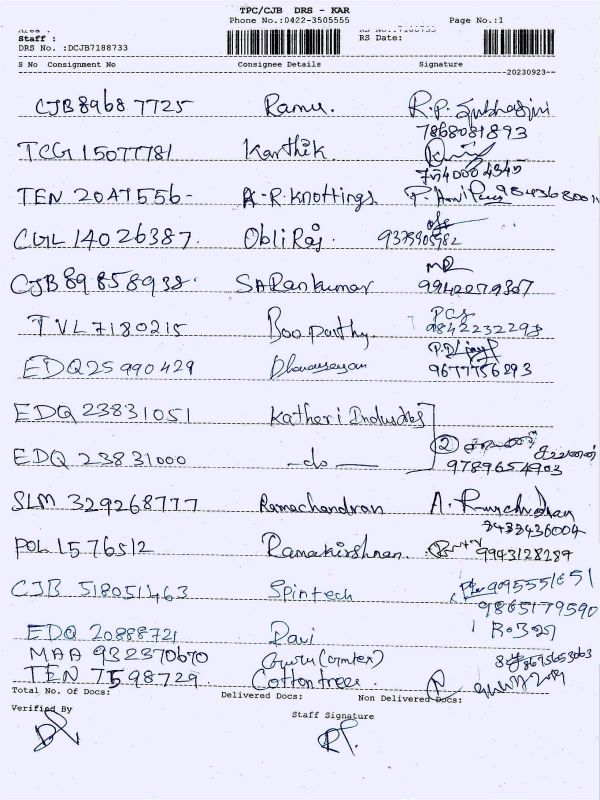 TPC/CJB DRS - KAR
Phone No.:0422-3505555 Page No.:1
Staff :
DRS No. :DCJB7188733 RS Date:
S No Consignment No Consignee Details Signature
20230923
CJB89687725 Ramu. R.P. Subhasini
7868081893
TCG15077781 Karthik
7540004340
TEN 2047556- A-R-Knottings
CGL 14026387. Obli Raj 9375905982
CJB89858938. SARankumar 9942279807
TVL7180215 Boopathy 9842232298
EDQ25990429 Dhanaseyan 9677756293
EDQ 23831051 Katheri Industries
EDQ 23831000 -do- 2 9789654903
SLM 329268777 Ramachandran A. Ramchandran
9432436004
POL1576512 Ramakirshnan. 9943128289
CJB 518051463 Spintech 9095551651
9865179590
EDQ 20888721 Ravi
MAA 932370670 Guru (omtex)
TEN 7598729 Cottontree
Total No. Of Docs: Delivered Docs: Non Delivered Docs:
Verified By Staff Signature